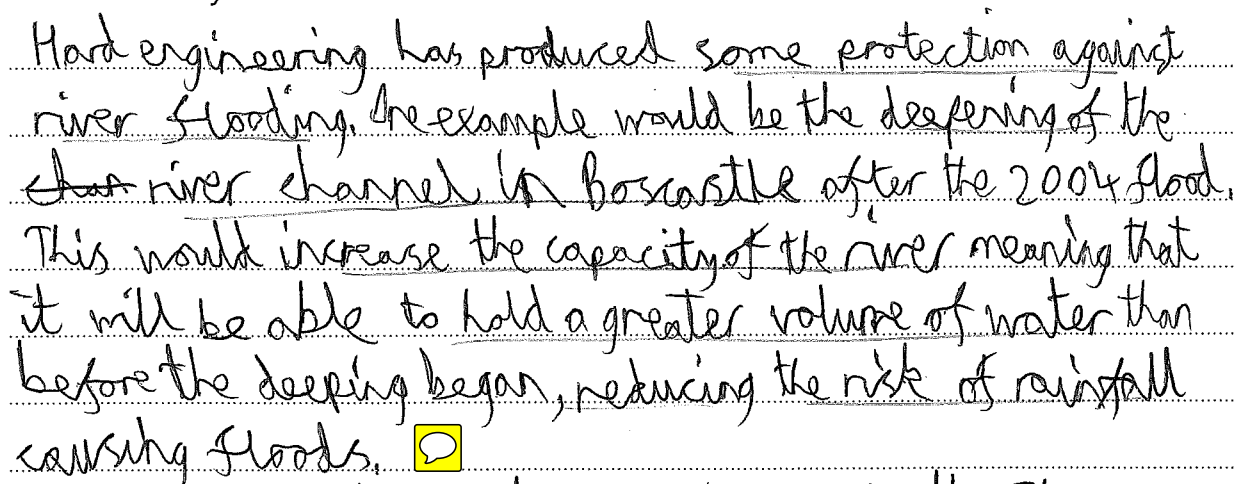 Hard engineering has produced some protection against
river flooding. One example would be the deepening of the
chan river channel in Boscastle after the 2004 flood.
This would increase the capacity of the river meaning that
it will be able to hold a greater volume of water than
before the deeping began, reducing the risk of rainfall
causing floods.